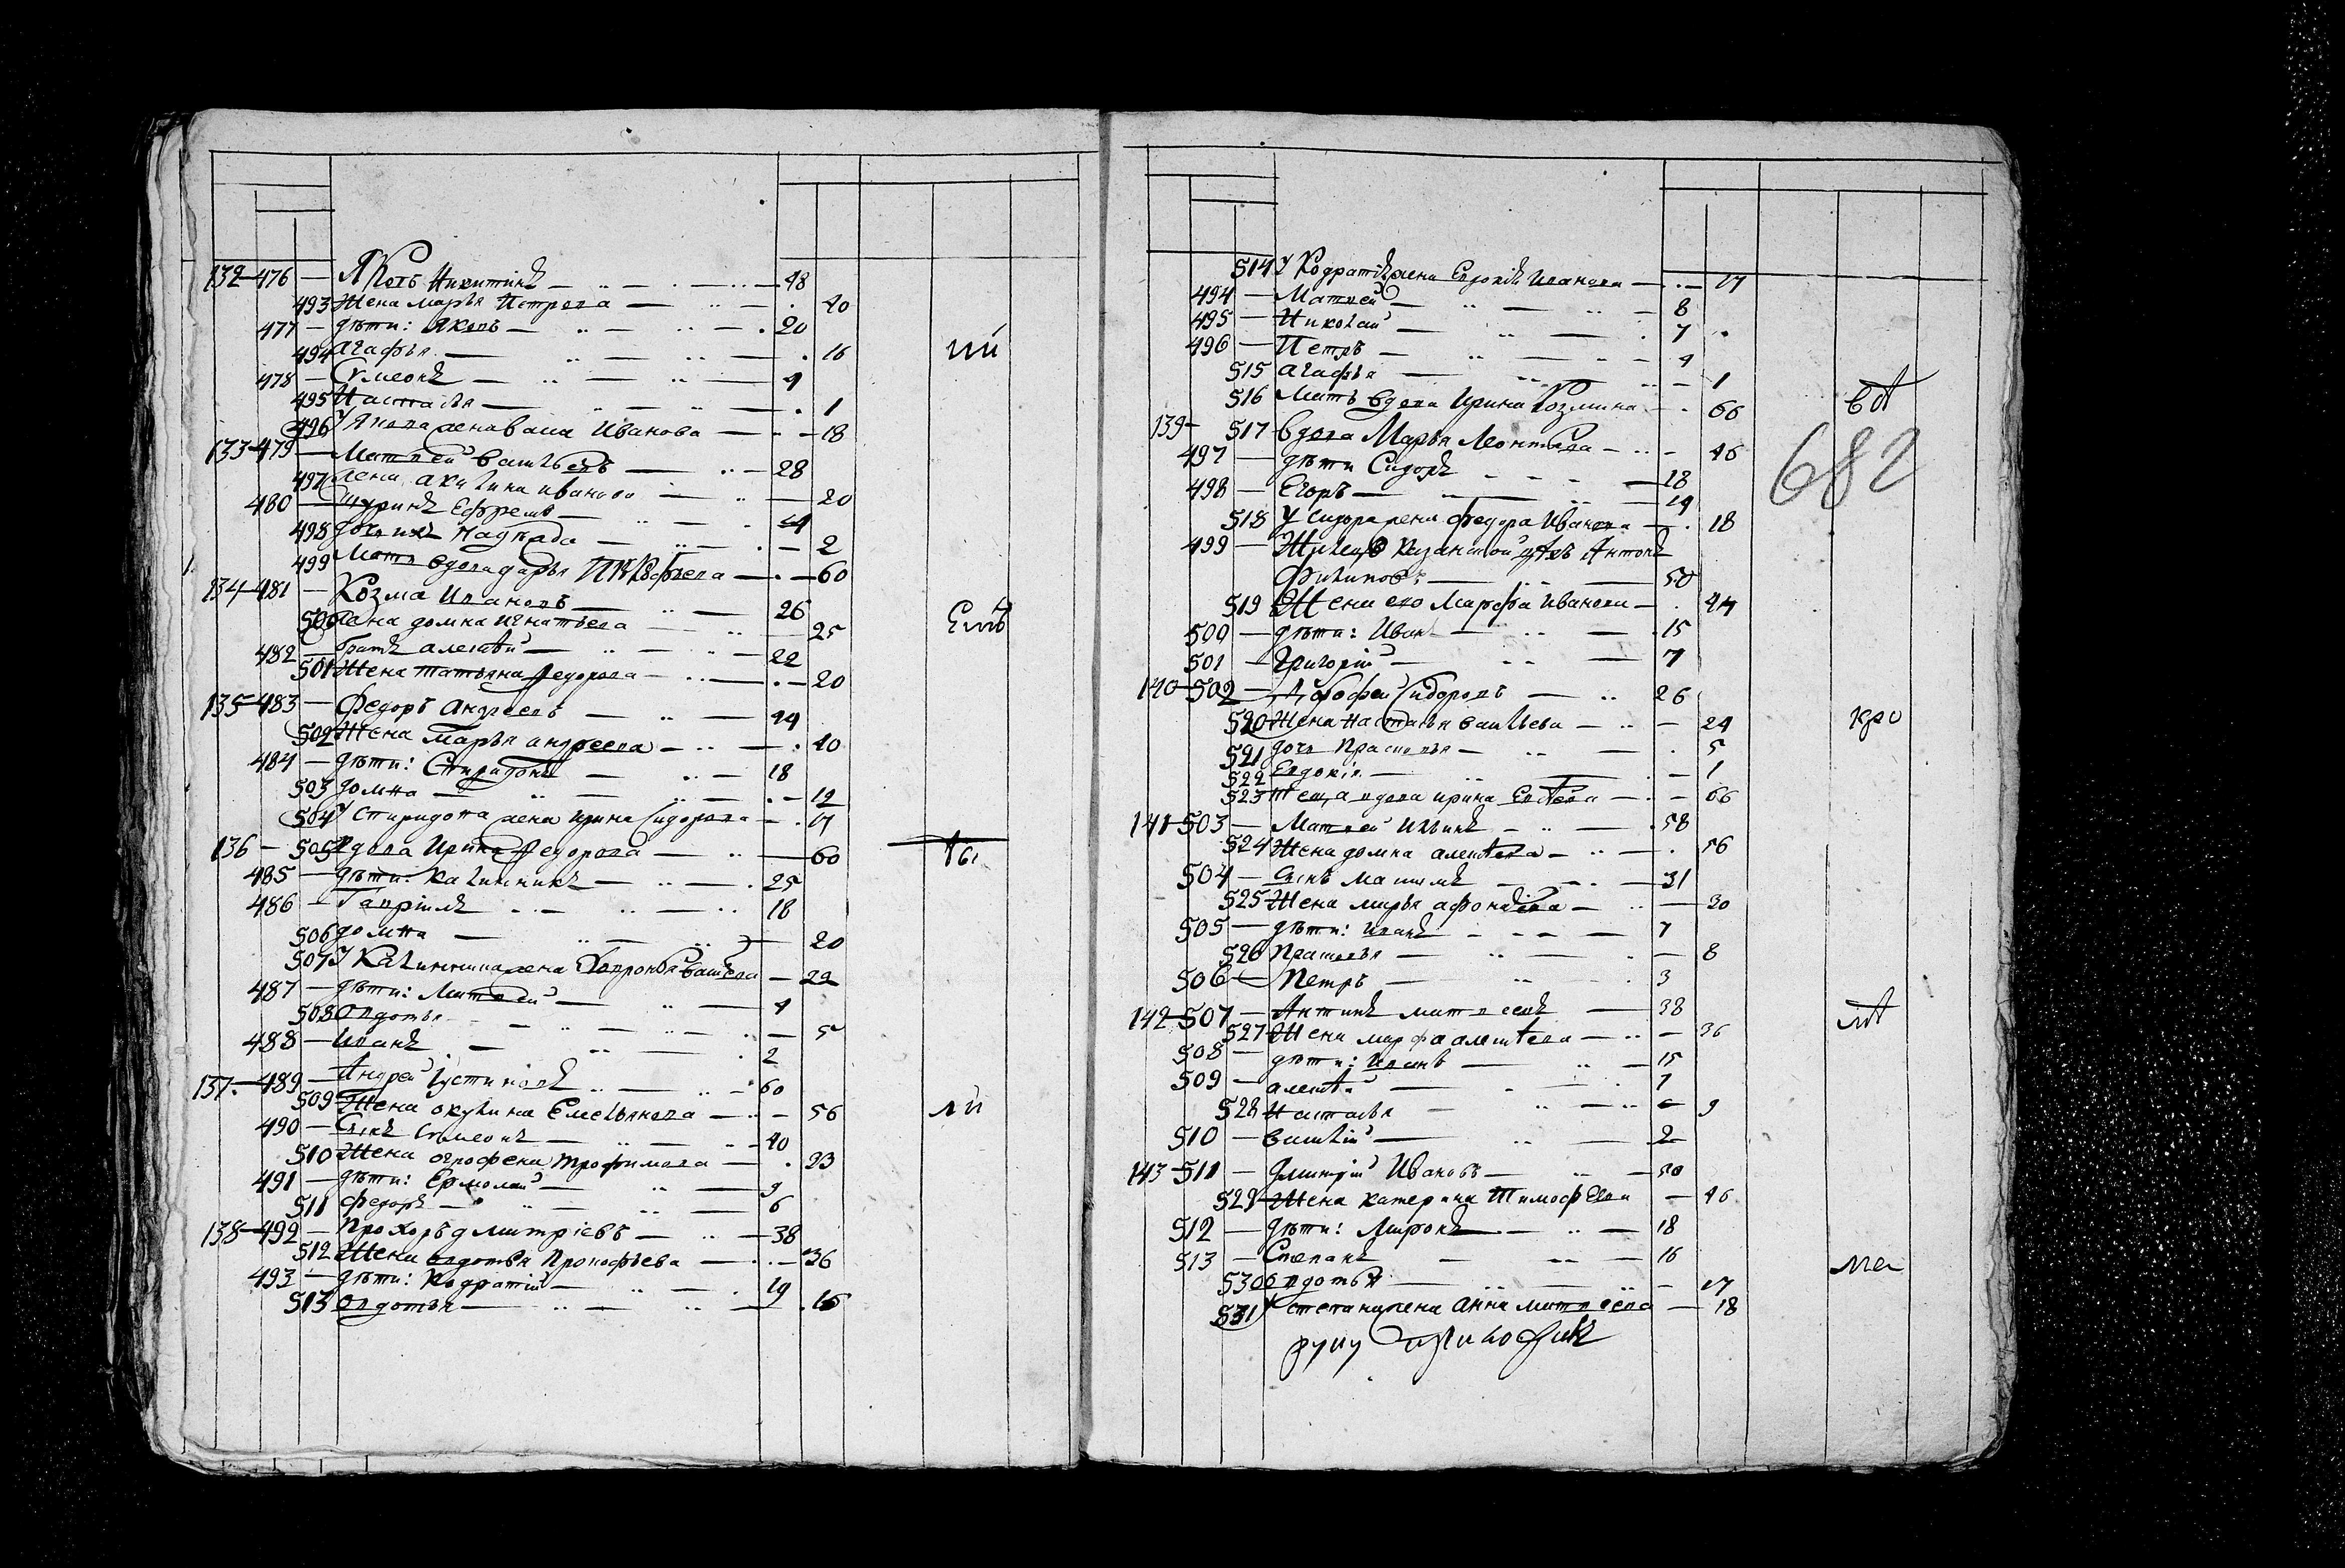 132 476 — Яковъ Никитинъ — 48
493 Жена Марья Петрова — 40
477 — дѣти: Яковъ — 20
494 Агафья — 16
ній
478 — Сѵмеонъ — 4
495 Насталья — 1
496 У Якова жена Иванова — 18
133 479 — Матвей Васильевъ — 28
497 жена Акилина Иванова — 20
480 — шуринъ Ефремъ — 14
498 дочь ихъ — 2
499 Мать вдова Дарья — 60
134 481 — Козма Ивановъ — 26
500 жена Домна Игнатьева — 25
482 — братъ Алексѣй — 22
501 Жена Татьяна Федорова — 20
135 483 — Федоръ Андреевъ — 44
502 Жена Марья Андреева — 40
484 — дѣти: Спиридонъ — 18
503 Домна — 12
504 У Спиридона жена Ирина Сидорова — 17
136 — 505 Вдова Ирина Федорова — 60
485 — дѣти: Калинникъ — 25
486 — Гаврилъ — 18
506 Домна — 20
507 У Калинника жена — 22
487 — дѣти: Матвей — 4
508 Овдотья — 5
488 — Иванъ — 2
137 489 — Андрей Іустиновъ — 60
509 Жена Окулина Емельянова — 56
лй
490 — Сынъ Сѵмеонъ — 40
510 Жена Огрофена Трофимова — 33
491 — дѣти: Ермолай — 9
511 Федоръ — 6
138 492 — Прохоръ Дмитріевъ — 38
512 Жена Овдотья Прокофьева — 36
493 — дѣти: Кодратій — 19
513 Овдотья — 16
514 У Кодратія жена Евдокія Иванова — 17
494 — Матвей — 8
495 — Николай — 7
496 — Петръ — 4
515 Агафья — 1
516 Мать вдова Ирина Козмина — 66
682
139 — 517 Вдова Марья Леонтьева — 46
497 — дѣти Сидоръ — 18
498 — Егоръ — 14
518 У Сидора жена Федора Иванова — 18
499 — Антонъ
Филиповъ — 50
519 Жена его Марфа Иванова — 44
500 — дѣти: Иванъ — 15
501 — Григорій — 7
140 502 — Сидоровъ — 26
520 Жена Насталья Васильева — 24
кро
521 дочь Прасковья — 5
522 Евдокія — 1
523 теща вдова Ирина — 66
141 503 — Матвей Ильинъ — 58
524 Жена Домна Алексѣева — 56
504 — Сынъ Максимъ — 31
525 Жена Марья Афонасьева — 30
505 — дѣти: Иванъ — 7
526 Прасковья — 8
506 — Петръ — 3
142 507 — Антипъ Матвеевъ — 38
527 Жена Марфа Алексѣева — 36
508 — дѣти: Иванъ — 15
509 — Алексѣй — 7
528 Насталья — 9
510 — Василій — 2
143 511 — Дмитрій Ивановъ — 50
529 Жена Катерина Тимофеева — 46
512 — дѣти: Миронъ — 18
513 — Степанъ — 16
530 Овдотья — 17
531 У Степана жена Анна Матвеева — 18
руку приложилъ